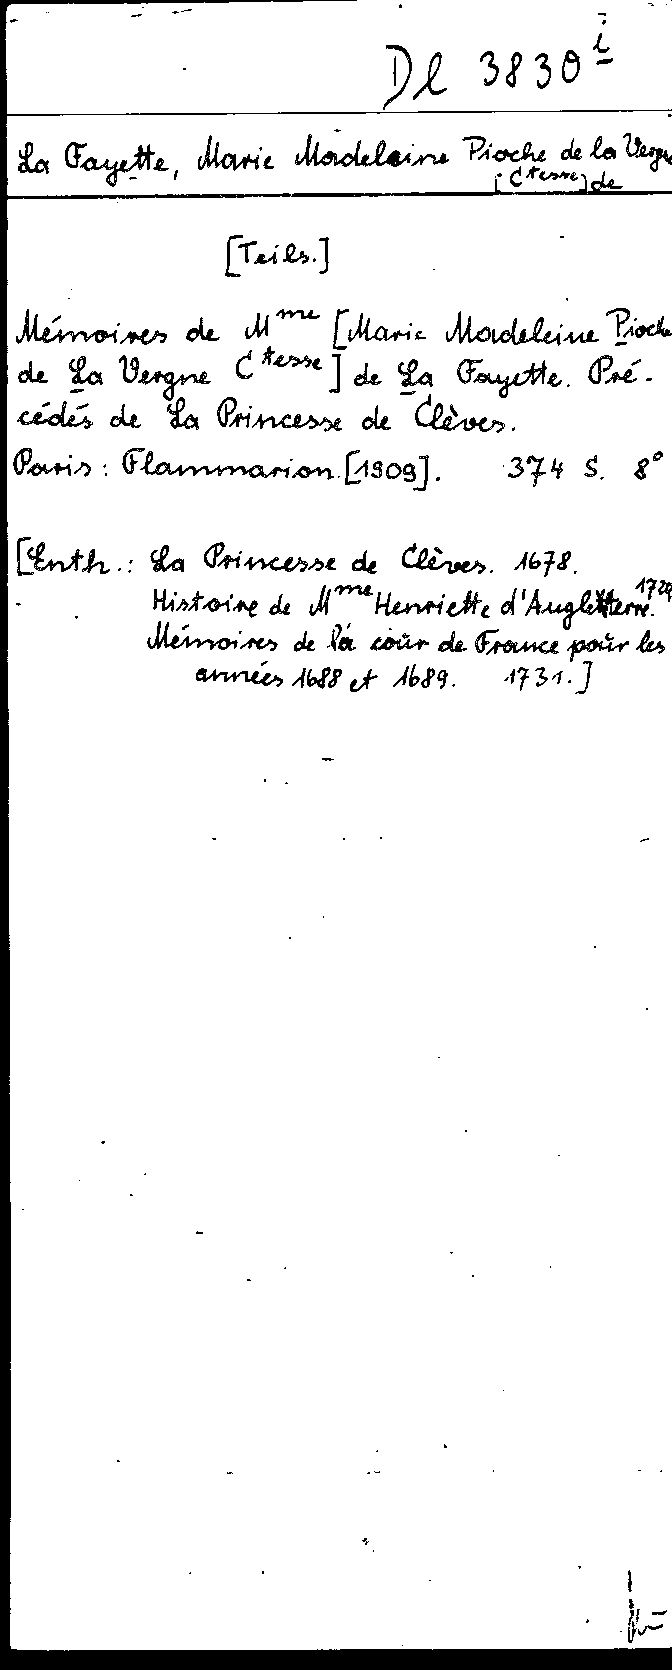 Dl 3830 i
La Fayette, Marie Madeleine Pioche de la Vergne
[Ctesse] de
[Teils.]
Mémoires de Mme [Marie Madeleine Pioche
de La Vergne Ctesse] de La Fayette. Pré-
cédés de La Princesse de Clèves.
Paris: Flammarion [1909]. 374 S. 8°
[Enth.: La Princesse de Clèves. 1678.
Histoire de Mme Henriette d'Angletterre. 
Mémoires de la cour de France pour les
années 1688 et 1689. 1731.]